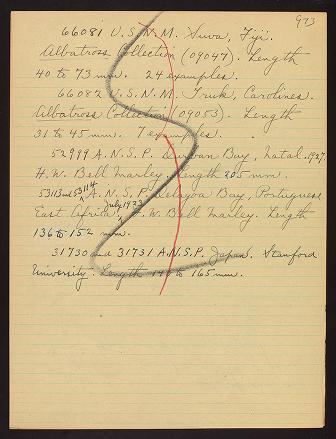 973
66081 U.S.N.M. Suva, Fiji.
Albatross Collection (09047). Length
40 to 73 mm. 24 examples.
66082 U.S.N.M. Truk, Carolines.
Albatross Collection (09053). Length
31 to 45 mm. 7 examples.
52999 A.N.S.P. Durban Bay, Natal. 1927.
H.W. Bell Marley. Length 205 mm.
53113 and 53114 A.N.S.P. Delagoa Bay, Portuguese
East Africa July 1923 H.W. Bell Marley. Length
136 to 152 mm.
31730 and 31731 A.N.S.P. Japan. Stanford
University. Length to 165 mm.